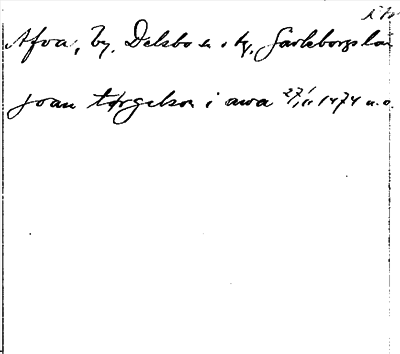 Afva, by, Delsbo sn o tg, Gävleborgs län
joan torgelson i awa 27/11 1474 u.o.